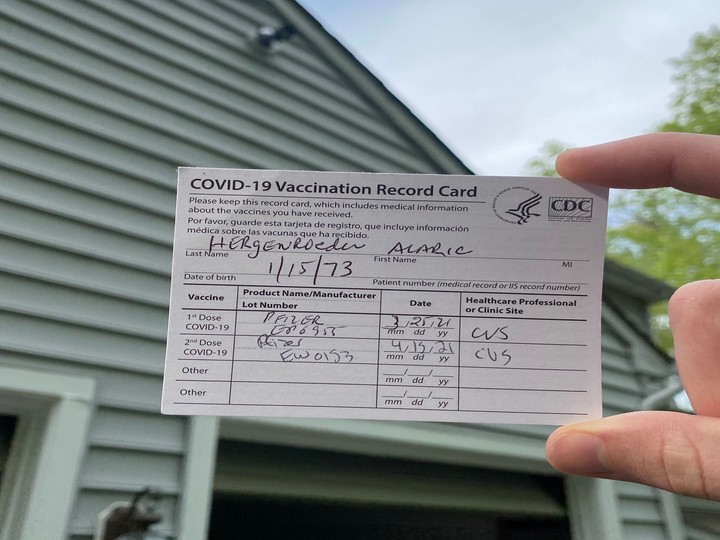 COVID-19 Vaccination Record Card
CDC
Please keep this record card, which includes medical information
about the vaccines you have received.
Por favor, guarde esta tarjeta de registro, que incluye información
médica sobre las vacunas que ha recibido.
HERGENROEDER ALARIC
Last Name First Name MI
1/15/73
Date of birth Patient number (medical record or IIS record number)
Vaccine Product Name/Manufacturer Date Healthcare Professional
Lot Number or Clinic Site
1st Dose PFIZER 3/25/21 CVS
COVID-19 mm dd yy
2nd Dose Pfizer CVS
COVID-19 EW0153 mm dd yy
Other
mm dd yy
Other
mm dd yy